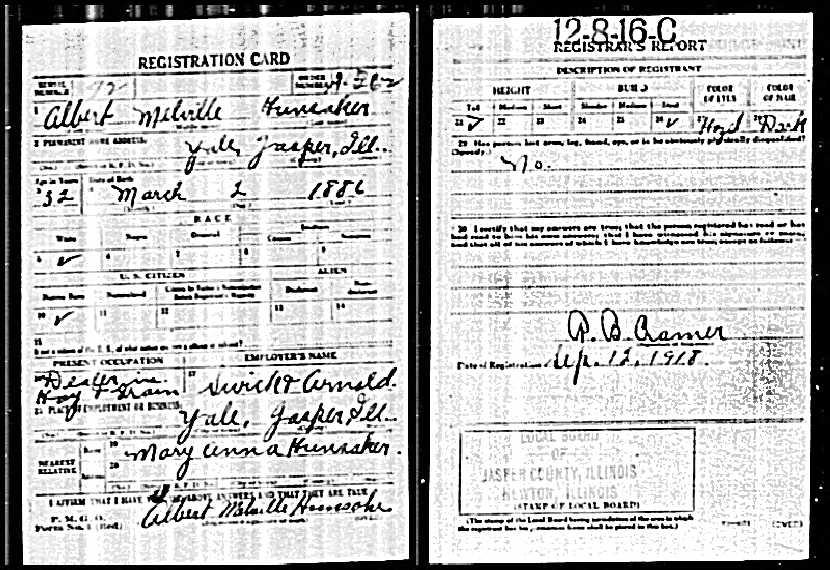 REGISTRATION CARD
SERIAL NUMBER 72 ORDER NUMBER
1 Albert Melville Hunsaker
2 PERMANENT HOME ADDRESS:
Yale, Jasper, Ill.
Age in Years Date of Birth
32 March 2 1886
RACE
White Negro Oriental Indian
Citizen
5 ✓ 6 7 8 9
U. S. CITIZEN ALIEN
Native Born Naturalized Declarant
10 ✓ 11 12 13 14
15
PRESENT OCCUPATION EMPLOYER'S NAME
Dealer in
Hay & Grain
17 Swick & Arnold.
PLACE OF EMPLOYMENT OR BUSINESS:
Yale, Jasper, Ill.
NEAREST RELATIVE Name 19
Mary Anna Hunsaker.
20
I AFFIRM THAT I HAVE VERIFIED ABOVE ANSWERS AND THAT THEY ARE TRUE
P. M. G. O.
Form No. 1 (Red)
Albert Melville Hunsaker
12-8-16-C
REGISTRAR'S REPORT
DESCRIPTION OF REGISTRANT
HEIGHT BUILD COLOR OF EYES COLOR OF HAIR
Tall Medium Short Slender Medium Stout
21 ✓ 22 23 24 25 26 ✓ Hazel Dark
29 Has person lost arm, leg, hand, eye, or is he obviously physically disqualified?
(Specify.)
No.
30 I certify that my answers are true; that the person registered has read or has
had read to him his own answers; that I have witnessed his signature or mark,
and that all of his answers of which I have knowledge are true, except as follows:
R. B. Cramer
Date of Registration Sep. 12, 1918.
LOCAL BOARD
OF
JASPER COUNTY, ILLINOIS
NEWTON, ILLINOIS
(STAMP OF LOCAL BOARD)
(The stamp of the Local Board having jurisdiction of the area in which
the registrant has his permanent home shall be placed in this box.)
(OVER)